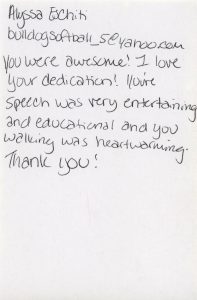 Alyssa Eschiti
bulldogsoftball_5@yahoo.com
You were awesome! I love
your dedication! You're
speech was very entertaining
and educational and you
walking was heartwarming.
Thank you!